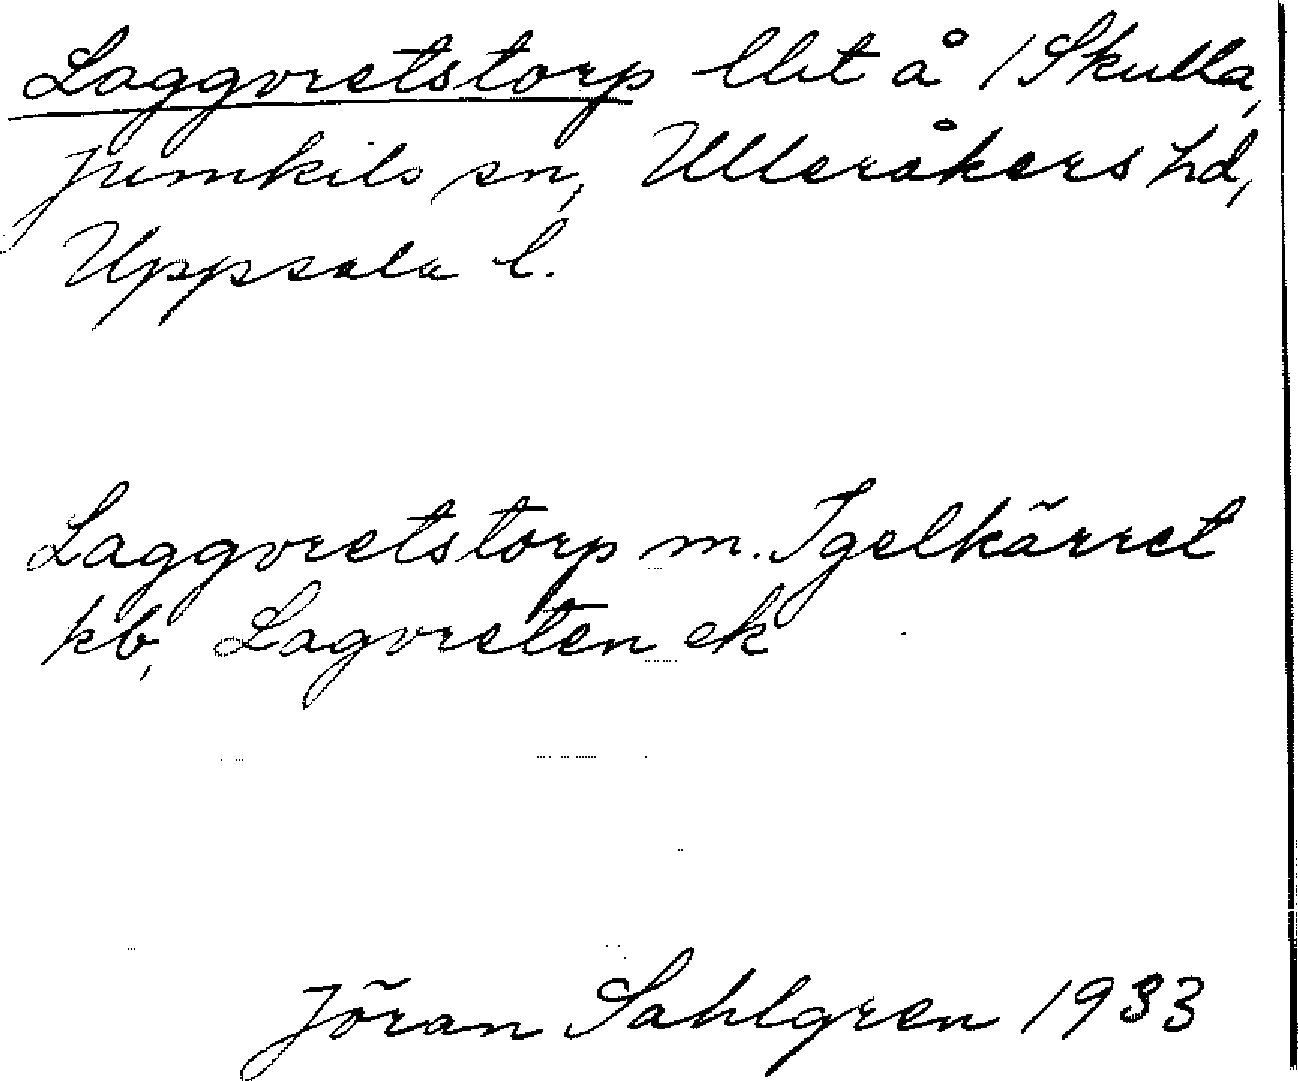 Laggvretstorp llit å / Skulla,
Jumkils sn, Ulleråkers hd,
Uppsala l.
Laggvretstorp m. Igelkärret
kb, Lagvreten ek
Jöran Sahlgren 1933